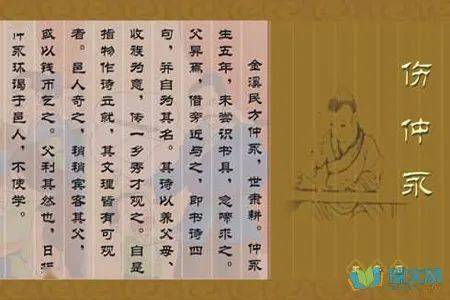 伤仲永
金溪民方仲永，世隶耕。仲永
生五年，未尝识书具，忽啼求之。
父异焉，借旁近与之，即书诗四
句，并自为其名。其诗以养父母、
收族为意，传一乡秀才观之。自是
指物作诗立就，其文理皆有可观
者。邑人奇之，稍稍宾客其父，
或以钱币乞之。父利其然也，日扳
仲永环谒于邑人，不使学。